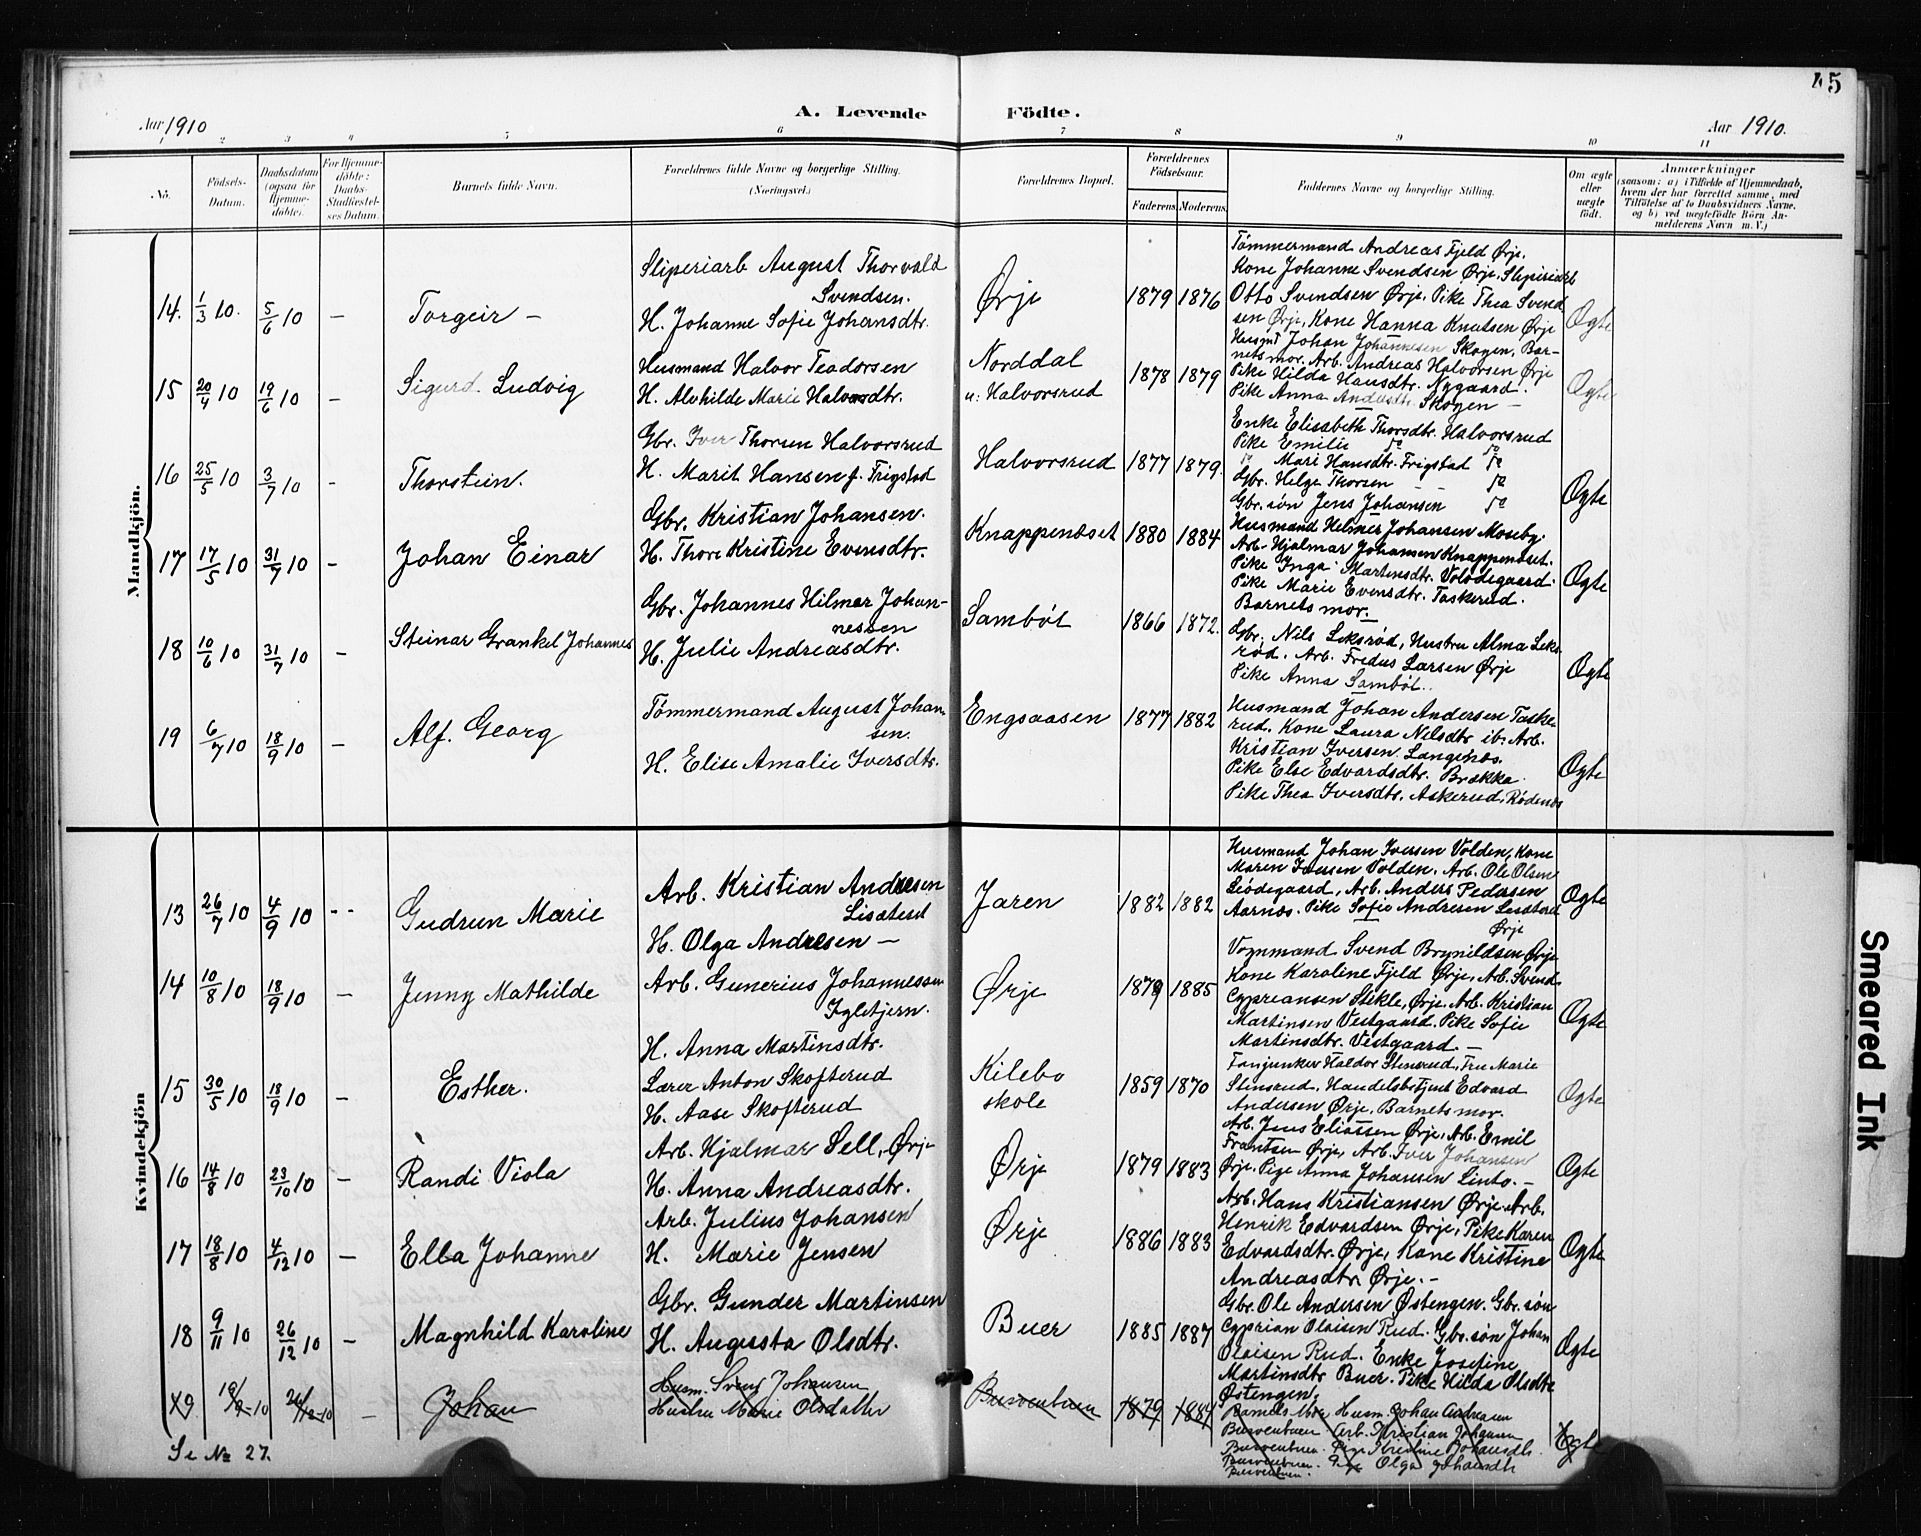 45
Aar 1910
A. Levende Födte.
Aar 1910.
1 2 3 4 5 6 7 8 9 10 11
No.
Födsels-Datum.
Daabsdatum (ogsaa for Hjemme-döbte).
For Hjemme-döbte: Daabs-Stadfæstel-ses Datum.
Barnets fulde Navn.
Forældrenes fulde Navne og borgerlige Stilling. (Næringsvei.)
Forældrenes Bopæl.
Forældrenes Födselsaar.
Faderens. Moderens.
Faddernes Navne og borgerlige Stilling.
Om ægte eller uægte födt.
Anmærkninger
(saasom: a) i Tilfælde af Hjemmedaab,
hvem der har forrettet samme, med
Tilföielse af to Daabsvidners Navne.
og b) ved uægtefödte Börn An-
melderens Navn m. V.)
Mandkjön.
14. 1/3 10. 5/6 10 — Torgeir —
Sliperiarb August Thorvald
Svendsen.
H. Johanne Sofie Johansdtr.
Ørje 1879 1876
Tømmermand Andreas Fjeld Ørje.
Kone Johanne Svendsen Ørje. Sliperiarb
Otto Svendsen Ørje. Pike Thea Svend
sen Ørje, Kone Hanna Knutsen Ørje
Ogte
15 20/4 10 19/6 10 - Sigurd Ludvig
Husmand Halvor Teodorsen
H. Alvhilde Marie Halvorsdtr.
Norddal
u. Halvorsrud
1878 1879
Husmd Johan Johannesen Skogen, Bar-
nets mor. Arb. Andreas Halvorsen Ørje
Pike Hilda Hansdtr. Nygaard.
Pike Anna Skogen —
Ogte
16 25/5 10 3/7 10 - Thorstein.
Gbr. Iver Thorsen Halvorsrud
H. Marit Hansen f. Frigstad
Halvorsrud 1877 1879.
Enke Elisabeth Thorsdtr. Halvorsrud
Pike Emilie do do
do Mari Hansdtr. Frigstad do
Gbr. Helge Thorsen - - do
Gbr. søn Jens Johansen do
Ogte
17 17/5 10 31/7 10 - Johan Einar
Gbr. Kristian Johansen.
H. Thora Kristine Evensdtr.
Knappenæset 1880 1884
Husmand Helmer Johansen Moseby.
Arb. Hjalmar Johansen Knappenæset.
Pike Inga Martinsdtr. Volodegaard.
Pike Marie Evensdtr. Taskerud.
Barnets mor.
Ogte
18 10/6 10 31/7 10 - Steinar Grankel Johannes
Gbr. Johannes Hilmar Johan-
nessen
H. Julie Andreasdtr.
Sambøl 1866 1872.
Gbr. Nils Leksrød, Hustru Alma Leks
rød. Arb. Fredus Larsen Ørje
Pike Anna Sambøl.
Ogte
19 6/7 10 18/9 10 — Alf. Georg
Tømmermand August Johan-
sen.
H. Elise Amalie Iversdtr.
Engsaasen 1877 1882
Husmand Johan Andersen Taske
rud. Kone Laura Nilsdtr ib. Arb.
Kristian Iversen Langenæs.
Pike Else Edvardsdtr. Brække.
Pike Thea Iversdtr. Askerud, Rødenæs
Ogte
Kvindekjön
13 26/7 10 4/9 10 - - Gudrun Marie
Arb. Kristian Andresen
Lisæteret
H. Olga Andresen —
Jaren 1882 1882
Husmand Johan Iversen Volden, Kone
Maren Iversen Volden. Arb. Ole Olsen
Liødegaard, Arb. Anders Pedersen
Aarnæs. Pike Sofie Andresen
Ørje
Ogte
14 10/8 10 18/9 10 — Jenny Mathilde
Arb. Gunerius Johannessen
Igletjern.
H. Anna Martinsdtr.
Ørje 1879 1885
Vognmand Svend Brynildsen Ørje
Kone Karoline Fjeld Ørje, Arb. Svend
Cypriansen Stikle, Ørje. Arb. Kristian
Martinsen Vestgaard. Pike Sofie
Martinsdtr. Vestgaard. —
Ogte
15 30/5 10 18/9 10 — Esther.
Lærer Anton Skofterud
H. Aase Skofterud
Kilebo
skole
1859 1870
Fanjunker Haldor Stensrud, Fru Marie
Stensrud, Handelsbetjent Edvard
Andersen Ørje, Barnets mor.
Ogte
16 14/8 10 23/10 10 — Randi Viola
Arb. Hjalmar Sell, Ørje
H. Anna Andreasdtr.
Ørje 1879 1883
Arb. Jens Eliassen Ørje, Arb. Emil
Frantsen Ørje, Arb. Iver Johansen
Ørje. Pige Anna Johansen Linto. —
Ogte
17 18/8 10 4/12 10 — Ella Johanne
Arb. Julius Johansen
H. Marie Jensen
Ørje 1886 1883
Arb. Hans Kristiansen Ørje. Arb.
Henrik Edvardsen Ørje, Pike Karen
Edvardsdtr. Ørje, Kone Kristine
Andreasdtr Ørje. —
Ogte
18 9/11 10 26/12 10 — Magnhild Karoline
Gbr. Gunder Martinsen
H. Augusta Olsdtr.
Buer 1885 1887
Gbr. Ole Andersen Østengen. Gbr. søn
Cyprian Olaisen Rud. Gbr. søn Johan
Olaisen Rud. Enke Josefine
Martinsdtr Buer. Pike Hilda Olsdtr
Østengen.
Ogte
19 Johan
Husm. Svend Johansen
Hustru Marie Olsdatter
1879 1884
Barnets Mor Husm. Johan Andresen
Arb. Kristian Johansen
Pige Kristine Johansdtr.
Pige Olga Johansdtr
Egte
Se No 27.
Smeared Ink